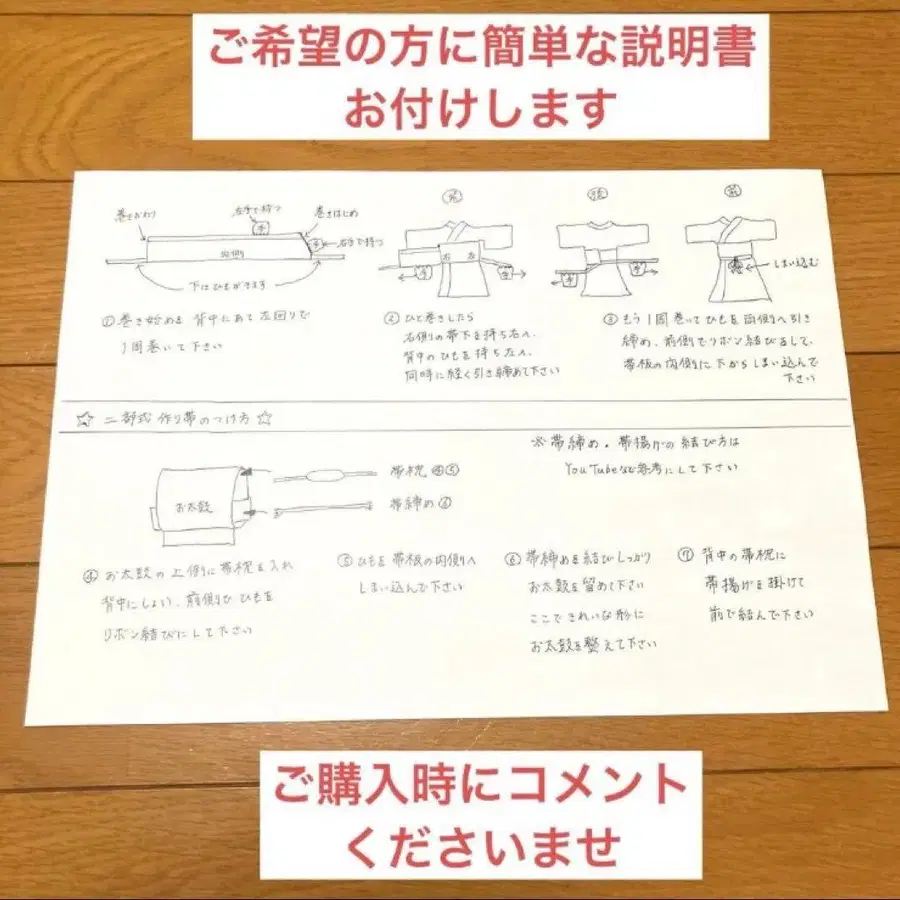 ご希望の方に簡単な説明書
お付けします
巻きおわり
左手で持つ
巻きはじめ
手
手
右手で持つ
内側
下にひもがきます
①巻き始めを背中にあて左回りで
1周巻いて下さい
前
右 左
手
手
②ひと巻きしたら
右側の帯下を持ち右へ、
背中のひもを持ち左へ、
同時に軽く引き締めて下さい
後
手
手
前
しまい込む
③もう1周巻いてひもを両側へ引き
締め、前側でリボン結びをして、
帯板の内側に下からしまい込んで
下さい
☆ 二部式 作り帯のつけ方 ☆
※帯締め・帯揚げの結び方は
YouTubeなど参考にして下さい
お太鼓
帯枕 ④⑤
帯締め ⑥
④お太鼓の上側に帯枕を入れ
背中にしょい、前側でひもを
リボン結びにして下さい
⑤ひもを帯板の内側へ
しまい込んで下さい
⑥帯締めを結びしっかり
お太鼓を留めて下さい
ここできれいな形に
お太鼓を整えて下さい
⑦背中の帯枕に
帯揚げを掛けて
前で結んで下さい
ご購入時にコメント
くださいませ